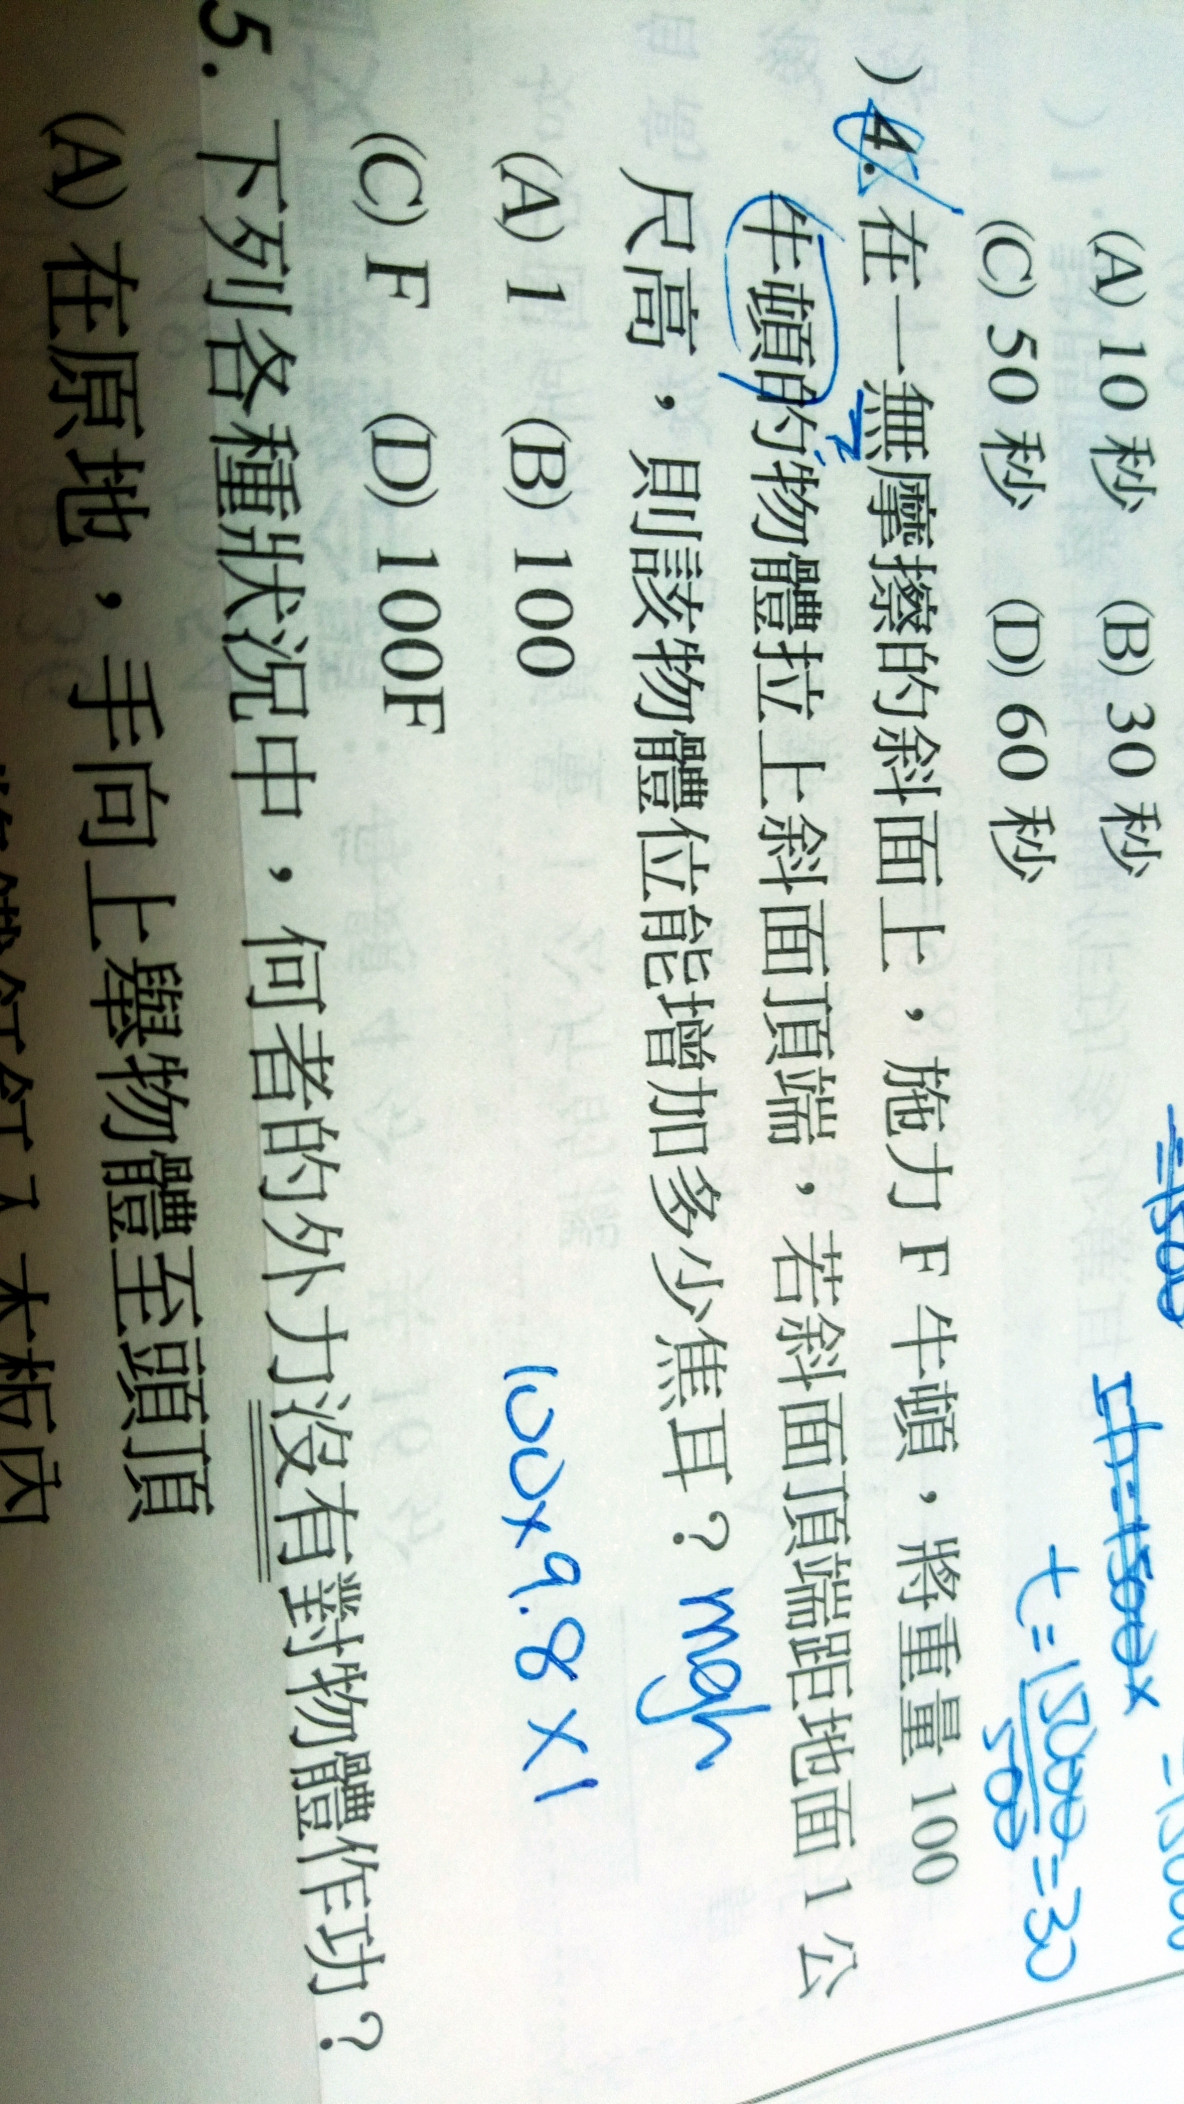 =1500
(A) 10 秒 (B) 30 秒
(C) 50 秒 (D) 60 秒
t=15000/500=30
) 4. 在一無摩擦的斜面上，施力 F 牛頓，將重量 100
牛頓的物體拉上斜面頂端，若斜面頂端距地面 1 公
尺高，則該物體位能增加多少焦耳？ mgh
(A) 1 (B) 100
100×9.8×1
(C) F (D) 100F
5. 下列各種狀況中，何者的外力沒有對物體作功？
(A) 在原地，手向上舉物體至頭頂